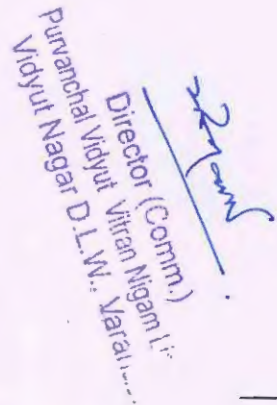 Director (Comm.)
Purvanchal Vidyut Vitran Nigam
Vidyut Nagar D.L.W.,